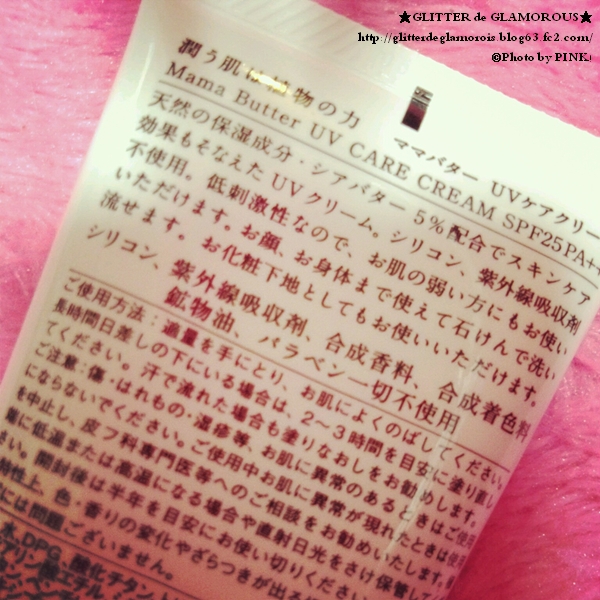 ★GLITTER de GLAMOROUS★
http://glitterdeglamorois.blog63.fc2.com/
©Photo by PINK
潤う肌は植物の力
ママバター UVケアクリー
Mama Butter UV CARE CREAM SPF25PA++
天然の保湿成分・シアバター5%配合でスキンケア
効果もそなえたUVクリーム。シリコン、紫外線吸収剤
不使用。低刺激性なので、お肌の弱い方にもお使い
いただけます。お顔、お身体まで使えて石けんで洗い
流せます。お化粧下地としてもお使いいただけます。
シリコン、紫外線吸収剤、合成香料、合成着色料
鉱物油、パラベン一切不使用
ご使用方法:適量を手にとり、お肌によくのばしてください。
長時間日差しの下にいる場合は、2〜3時間を目安に塗り直し
てください。汗で流れた場合も塗りなおしをお勧めします。
ご注意:傷・はれもの・湿疹等、お肌に異常のあるときはご使用
にならないでください。ご使用中お肌に異常が現れたときは使用
を中止し、皮フ科専門医等へのご相談をお勧めいたします。
に低温または高温になる場合や直射日光をさけ保管して
さい。開封後は半年を目安にお使い切りください
特性上、色、香りの変化やざらつきが出る
には問題ございません。
水、DPG、酸化チタン